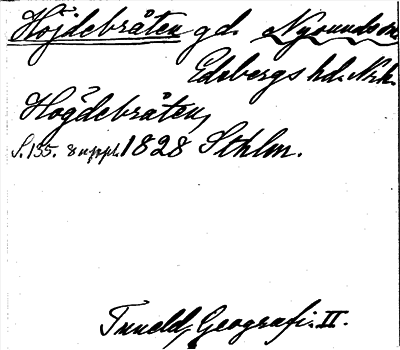 Höjdebråten gd. Nysunds sn
Edsbergs hd. Nrk.
Högdebråten,
S. 135. 8 uppl. 1828 Sthlm.
Tuneld, Geografi. II.